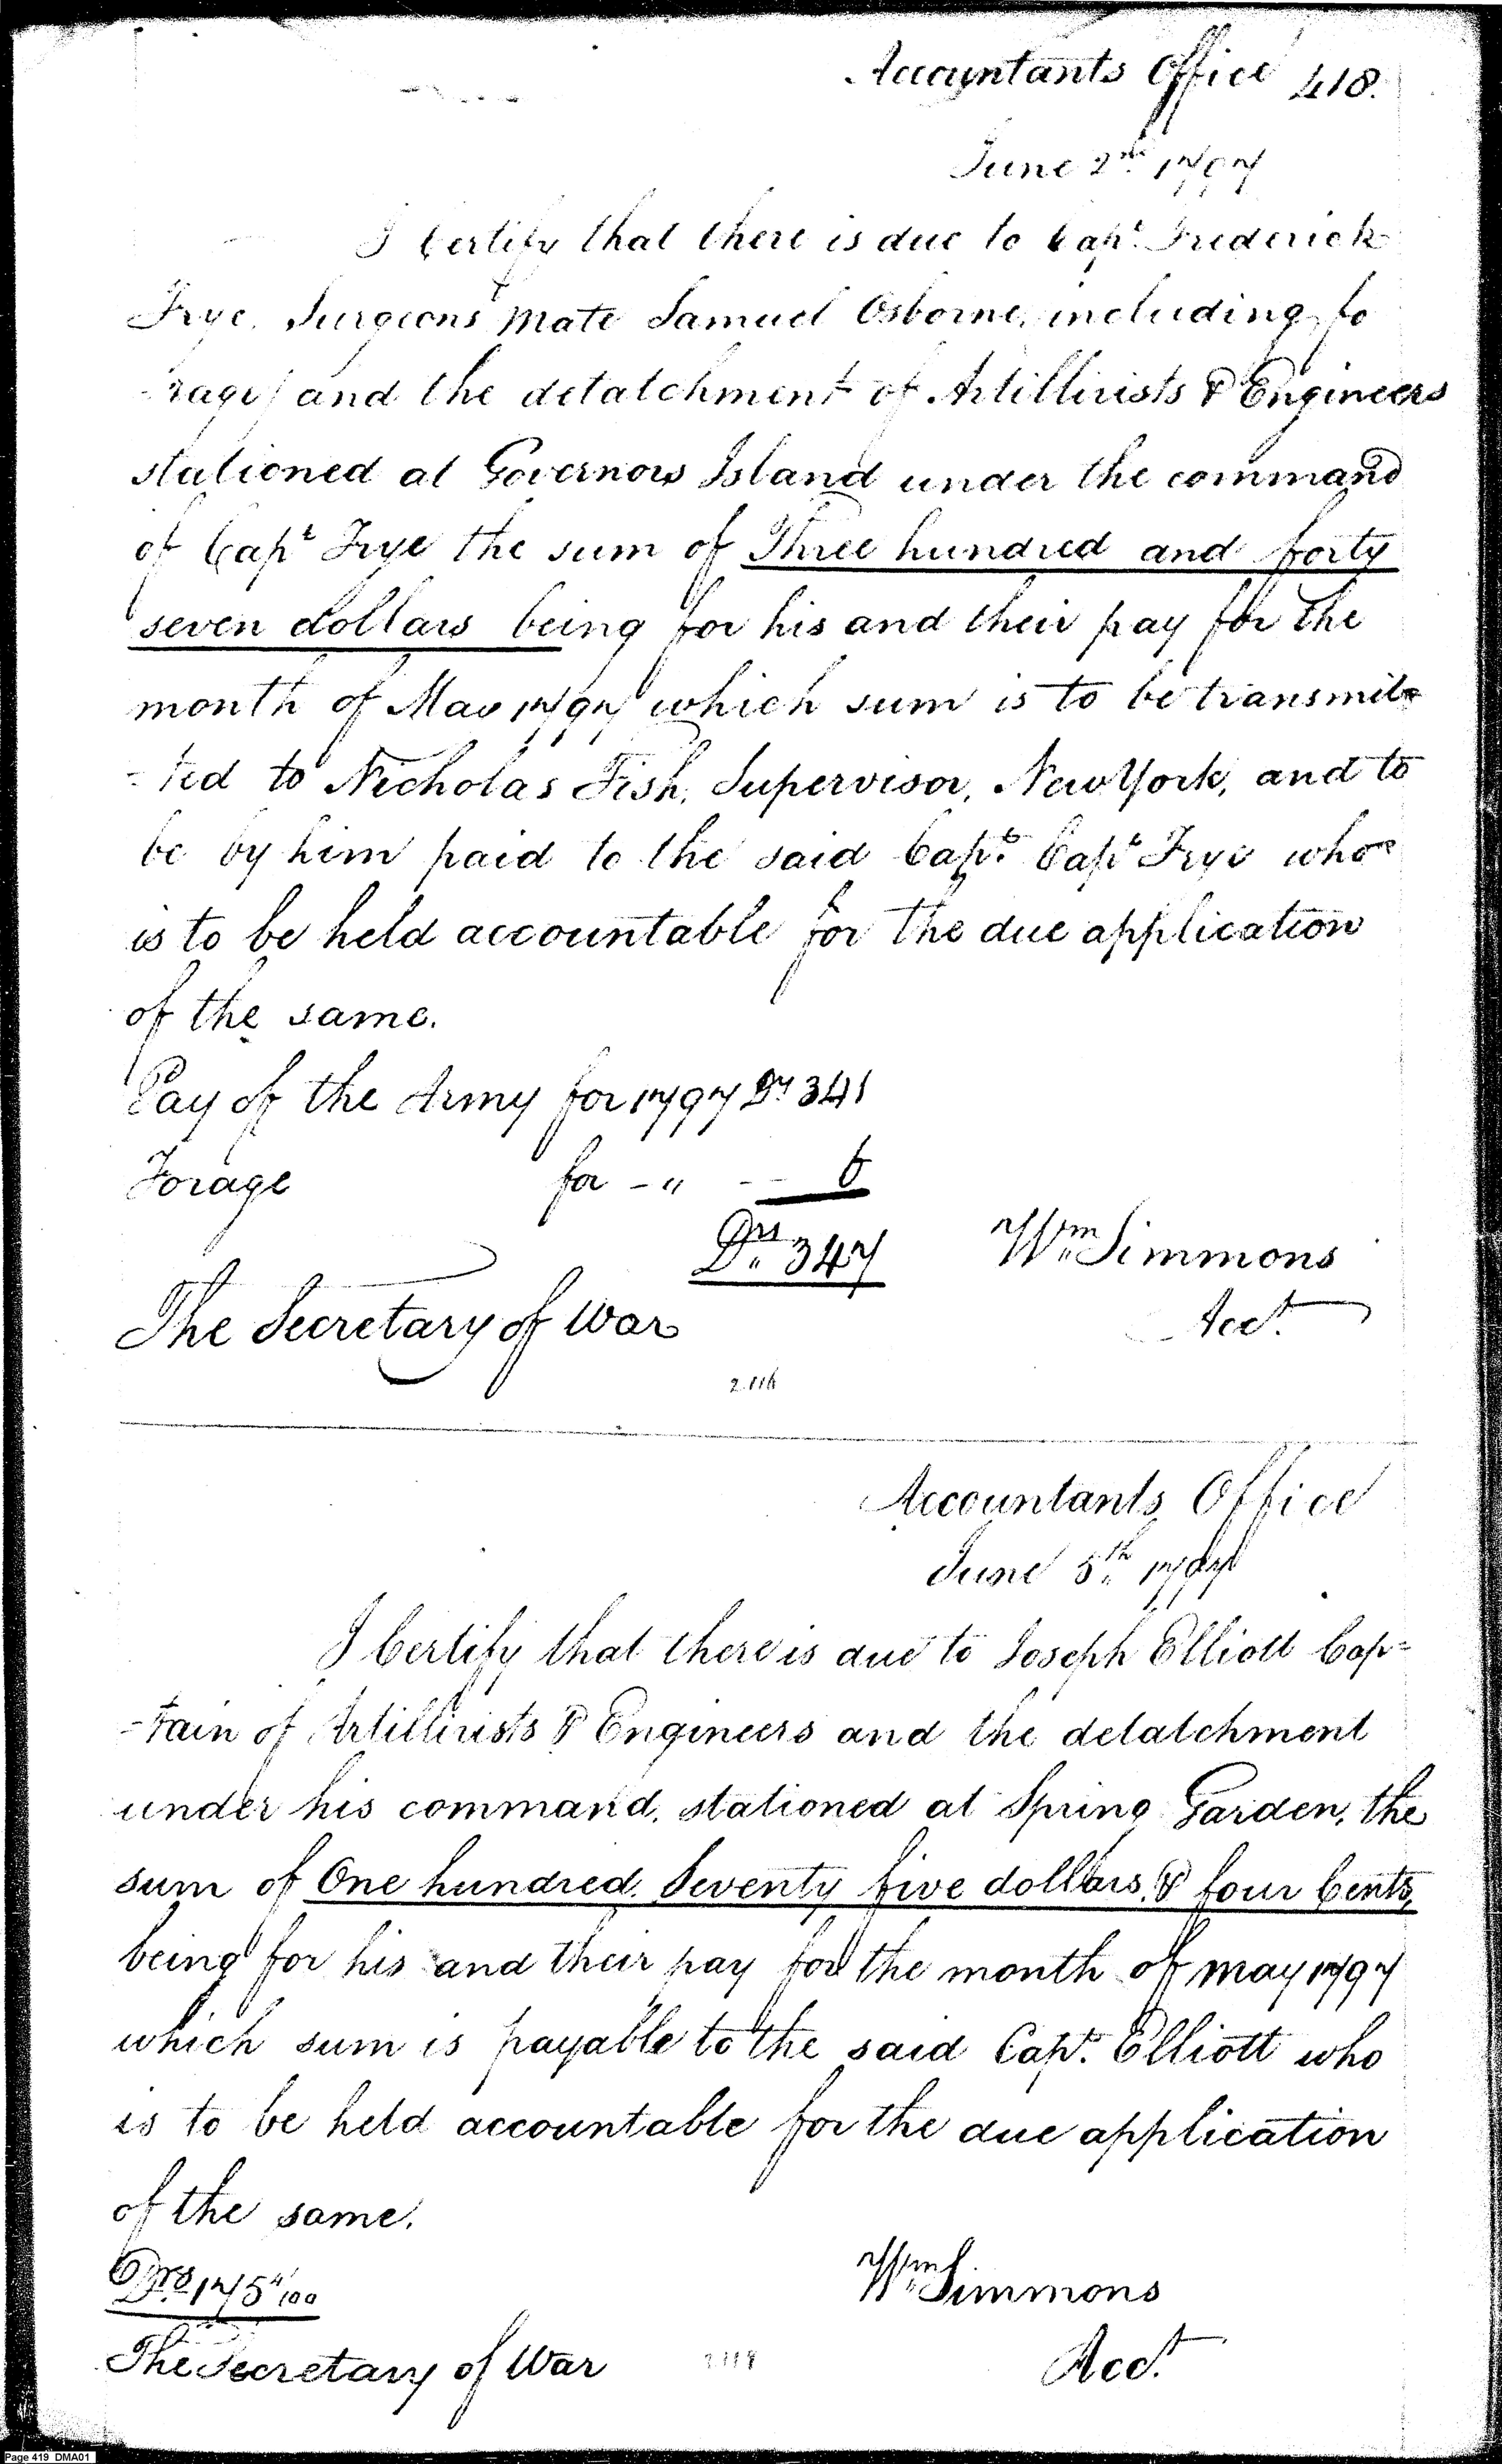 Accountants Office 418.
June 2nd. 1797
I Certify that there is due to Capt. Frederick
Frye, Surgeons Mate Samuel Osborne, including fo
-rage) and the detatchment of Artillirists & Engineers
stationed at Governors Island under the command
of Capt Frye the sum of Three hundred and forty
seven dollars being for his and their pay for the
month of May 1797 which sum is to be transmit=
=ted to Nicholas Fish, Supervisor, New York, and to
be by him paid to the said Capt. Capt Frye who
is to be held accountable for the due application
of the same.
Pay of the Army for 1797 Drs 341
Forage for - " -- 6
Drs. 347 Wm. Simmons
The Secretary of War Acct.
2.116
Accountants Office
June 5th. 1797
I Certify that there is due to Joseph Elliott Cap=
=tain of Artillirists & Engineers and the detatchment
under his command, stationed at Spring Garden, the
sum of One hundred. Seventy five dollars, & four Cents,
being for his and their pay for the month of May 1797
which sum is payable to the said Capt. Elliott who
is to be held accountable for the due application
of the same.
Drs. 175 4/100 Wm. Simmons
The Secretary of War Acct.
Page 419 DMA01